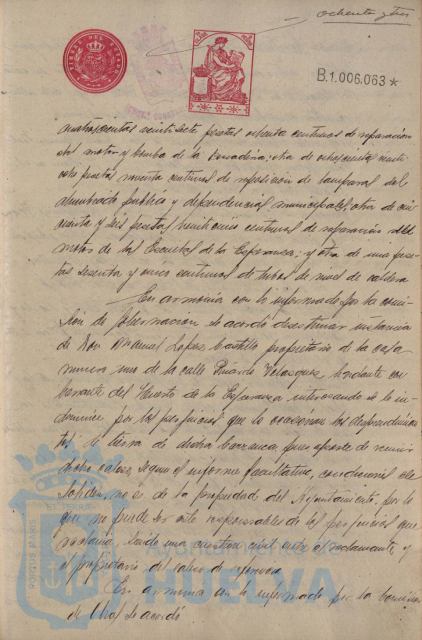 ochenta y tres
B.1.006.063*
cuatrocientas veintisiete pesetas ochenta centimos de reparacion
del motor y bomba de la Pescaderia; otra de ochocientas veinti
ocho pesetas noventa centimos de reposición de lamparas del
alumbrado público y dependencias municipales; otra de cin
cuenta y seis pesetas veinticinco centimos de reparacion del
motor de las Escuelas de la Esperanza; y otra de una pese
tas sesenta y cinco centimos de tubos de nivel de caldera
En armonia con lo informado por la comi
sión de Gobernacion se acordó desestimar instancia
de Don Manuel Lopez Castilla propietario de la casa
numero uno de la calle Duardo Velazquez, lindante con
barranco del Huerto de la Esperanza interesando se le in
demnice por los perjuicios que le ocasionan los desprendimien
tos de tierra de dicha barranca, pues aparte de reunir
dicho cabezo, segun el informe facultativo, condiciones de
solidez, no es de la propiedad del Ayuntamiento, por lo
que no puede ser este responsable de los perjuicios que
reclama, siendo una cuestion civil entre el reclamante y
el propietario del cabezo de referencia
En armonia con lo informado por la comision
de Obras se acordó
PORTUS MARIS
ET TERRAE
Ayuntamiento de
HUELVA